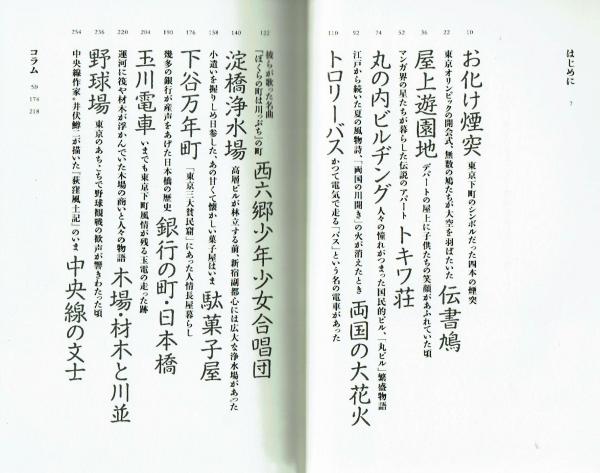 はじめに 7
10 お化け煙突 東京下町のシンボルだった四本の煙突
22 東京オリンピックの開会式、無数の鳩たちが大空を羽ばたいた 伝書鳩
36 屋上遊園地 デパートの屋上に子供たちの笑顔があふれていた頃
52 マンガ界の星たちが暮らした伝説のアパート トキワ荘
74 丸の内ビルヂング 人々の憧れがつまった国民的ビル、「丸ビル」繁盛物語
92 江戸から続いた夏の風物詩、「両国の川開き」の火が消えたとき 両国の大花火
110 トロリーバス かつて電気で走る「バス」という名の電車があった
122 彼らが歌った名曲『ぼくらの町は川っぷち』の町 西六郷少年少女合唱団
140 淀橋浄水場 高層ビルが林立する前、新宿副都心には広大な浄水場があった
158 小遣いを握りしめ日参した、あの甘くて懐かしい菓子屋はいま 駄菓子屋
176 下谷万年町 「東京三大貧民窟」にあった人情長屋暮らし
190 幾多の銀行が産声をあげた日本橋の歴史 銀行の町・日本橋
204 玉川電車 いまでも東京下町風情が残る玉電の走った跡
220 運河に筏や材木が浮かんでいた木場の商いと人々の物語 木場・材木と川並
236 野球場 東京のあちこちで野球観戦の歓声が響きわたった頃
254 中央線作家・井伏鱒二が描いた『荻窪風土記』のいま 中央線の文士
コラム 50 174 218